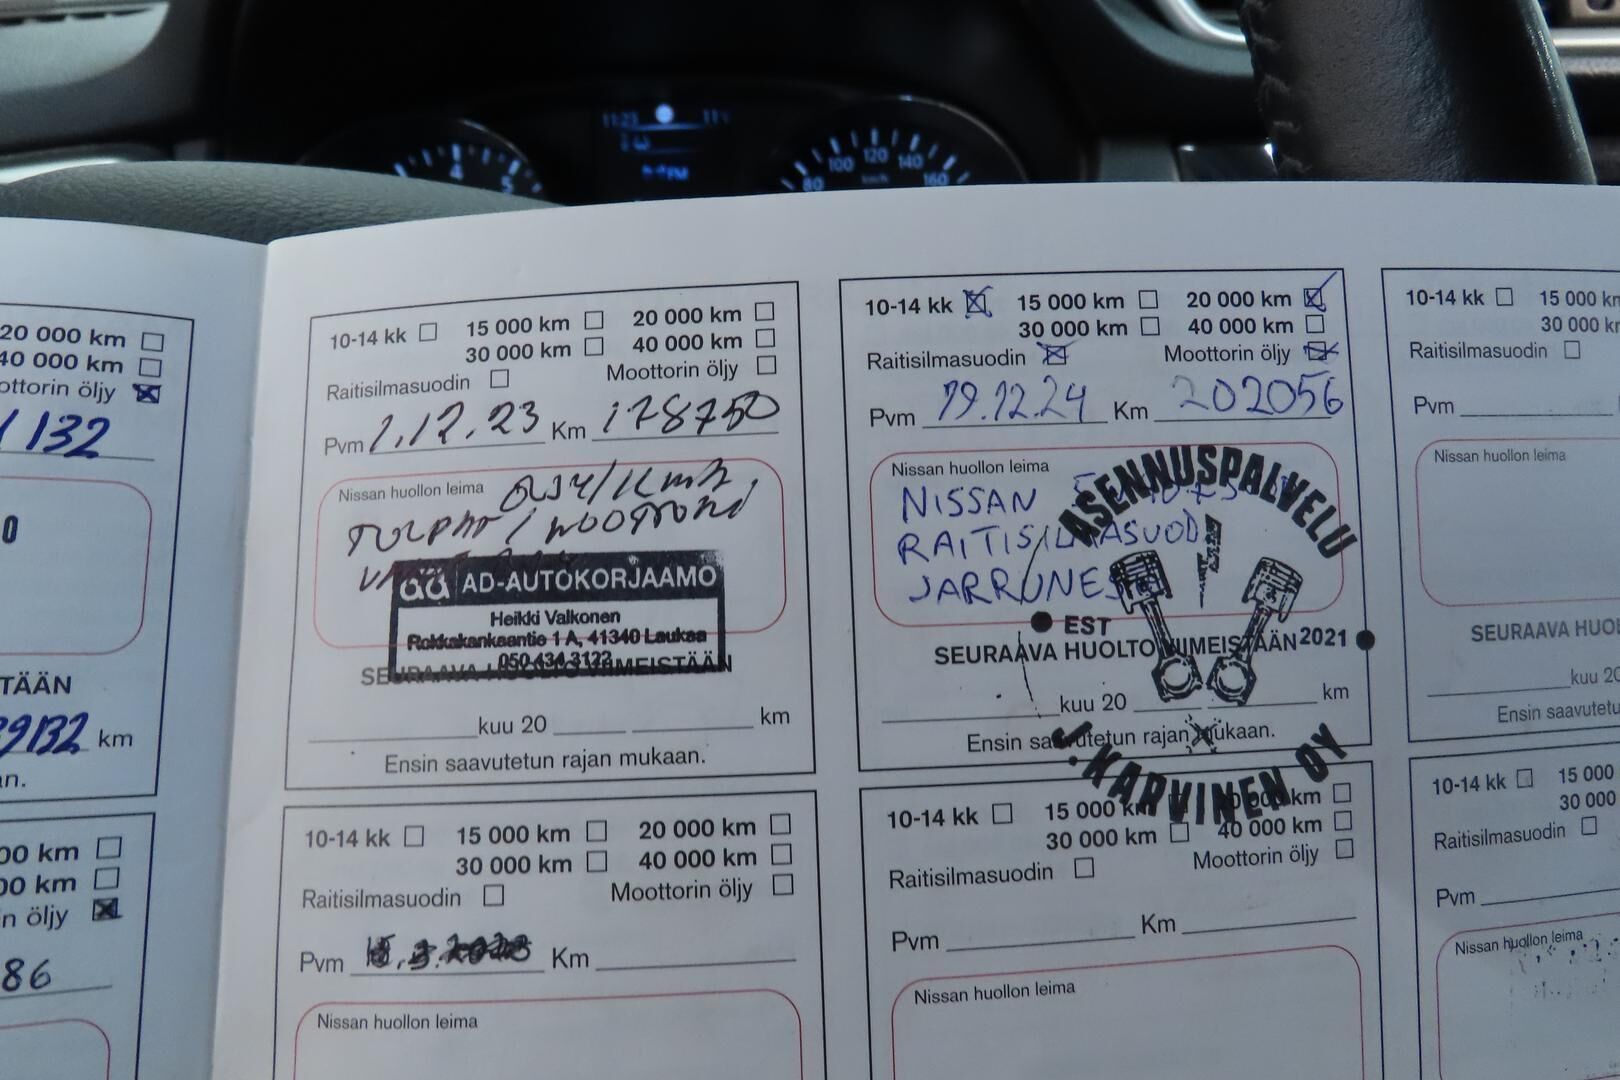 11:23
4
5
80
100
120
140
160
km/h
20 000 km
40 000 km
Moottorin öljy
132
TÄÄN
39132 km
an.
00 km
00 km
in öljy
86
10-14 kk 15 000 km 20 000 km
30 000 km 40 000 km
Raitisilmasuodin Moottorin öljy
Pvm 1.12.23 Km 178750
Nissan huollon leima ÖLJY/
TULPAT/
AD-AUTOKORJAAMO
Heikki Valkonen
Rokkakankaantie 1 A, 41340 Laukaa
050 434 3122
SEURAAVA HUOLTO VIIMEISTÄÄN
kuu 20 km
Ensin saavutetun rajan mukaan.
10-14 kk 15 000 km 20 000 km
30 000 km 40 000 km
Raitisilmasuodin Moottorin öljy
Pvm Km
Nissan huollon leima
10-14 kk 15 000 km 20 000 km
30 000 km 40 000 km
Raitisilmasuodin Moottorin öljy
Pvm 19.12.24 Km 202056
Nissan huollon leima
NISSAN
RAITISILMASUOD
JARRUNES
ASENNUSPALVELU
EST 2021
J. KARVINEN OY
SEURAAVA HUOLTO VIIMEISTÄÄN
kuu 20 km
Ensin saavutetun rajan mukaan.
10-14 kk 15 000 km 20 000 km
30 000 km 40 000 km
Raitisilmasuodin Moottorin öljy
Pvm Km
Nissan huollon leima
10-14 kk 15 000 km
30 000 km
Raitisilmasuodin
Pvm
Nissan huollon leima
SEURAAVA HUOL
kuu 20
Ensin saavutetu
10-14 kk 15 000
30 000
Raitisilmasuodin
Pvm
Nissan huollon leima